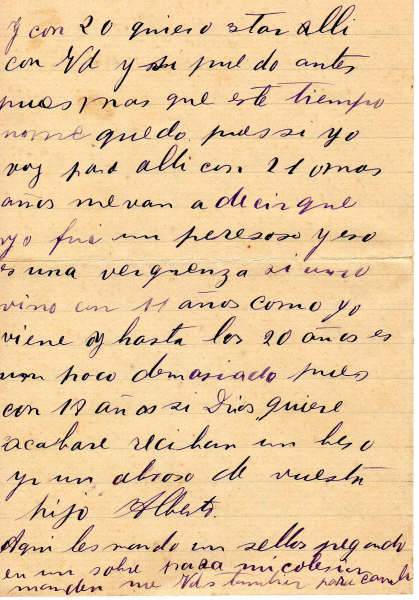 y con 20 quiero star alli
con Vd y si puedo antes
pues mas que este tiempo
nome quedo. pues si yo
voy para alli con 21 o mas
años me van a decir que
yo fui un peresoso y eso
es una verguenza si uno
vino con 11 años como yo
viene y hasta los 20 años es
un poco demasiado pues
con 18 años si Dios quiere
acabare reciban un beso
y un abroso de vuestro
hijo Alberto.
Aqui les mando un sellos pegando
en un sobre para mi colesion
manden me Vds tambien para